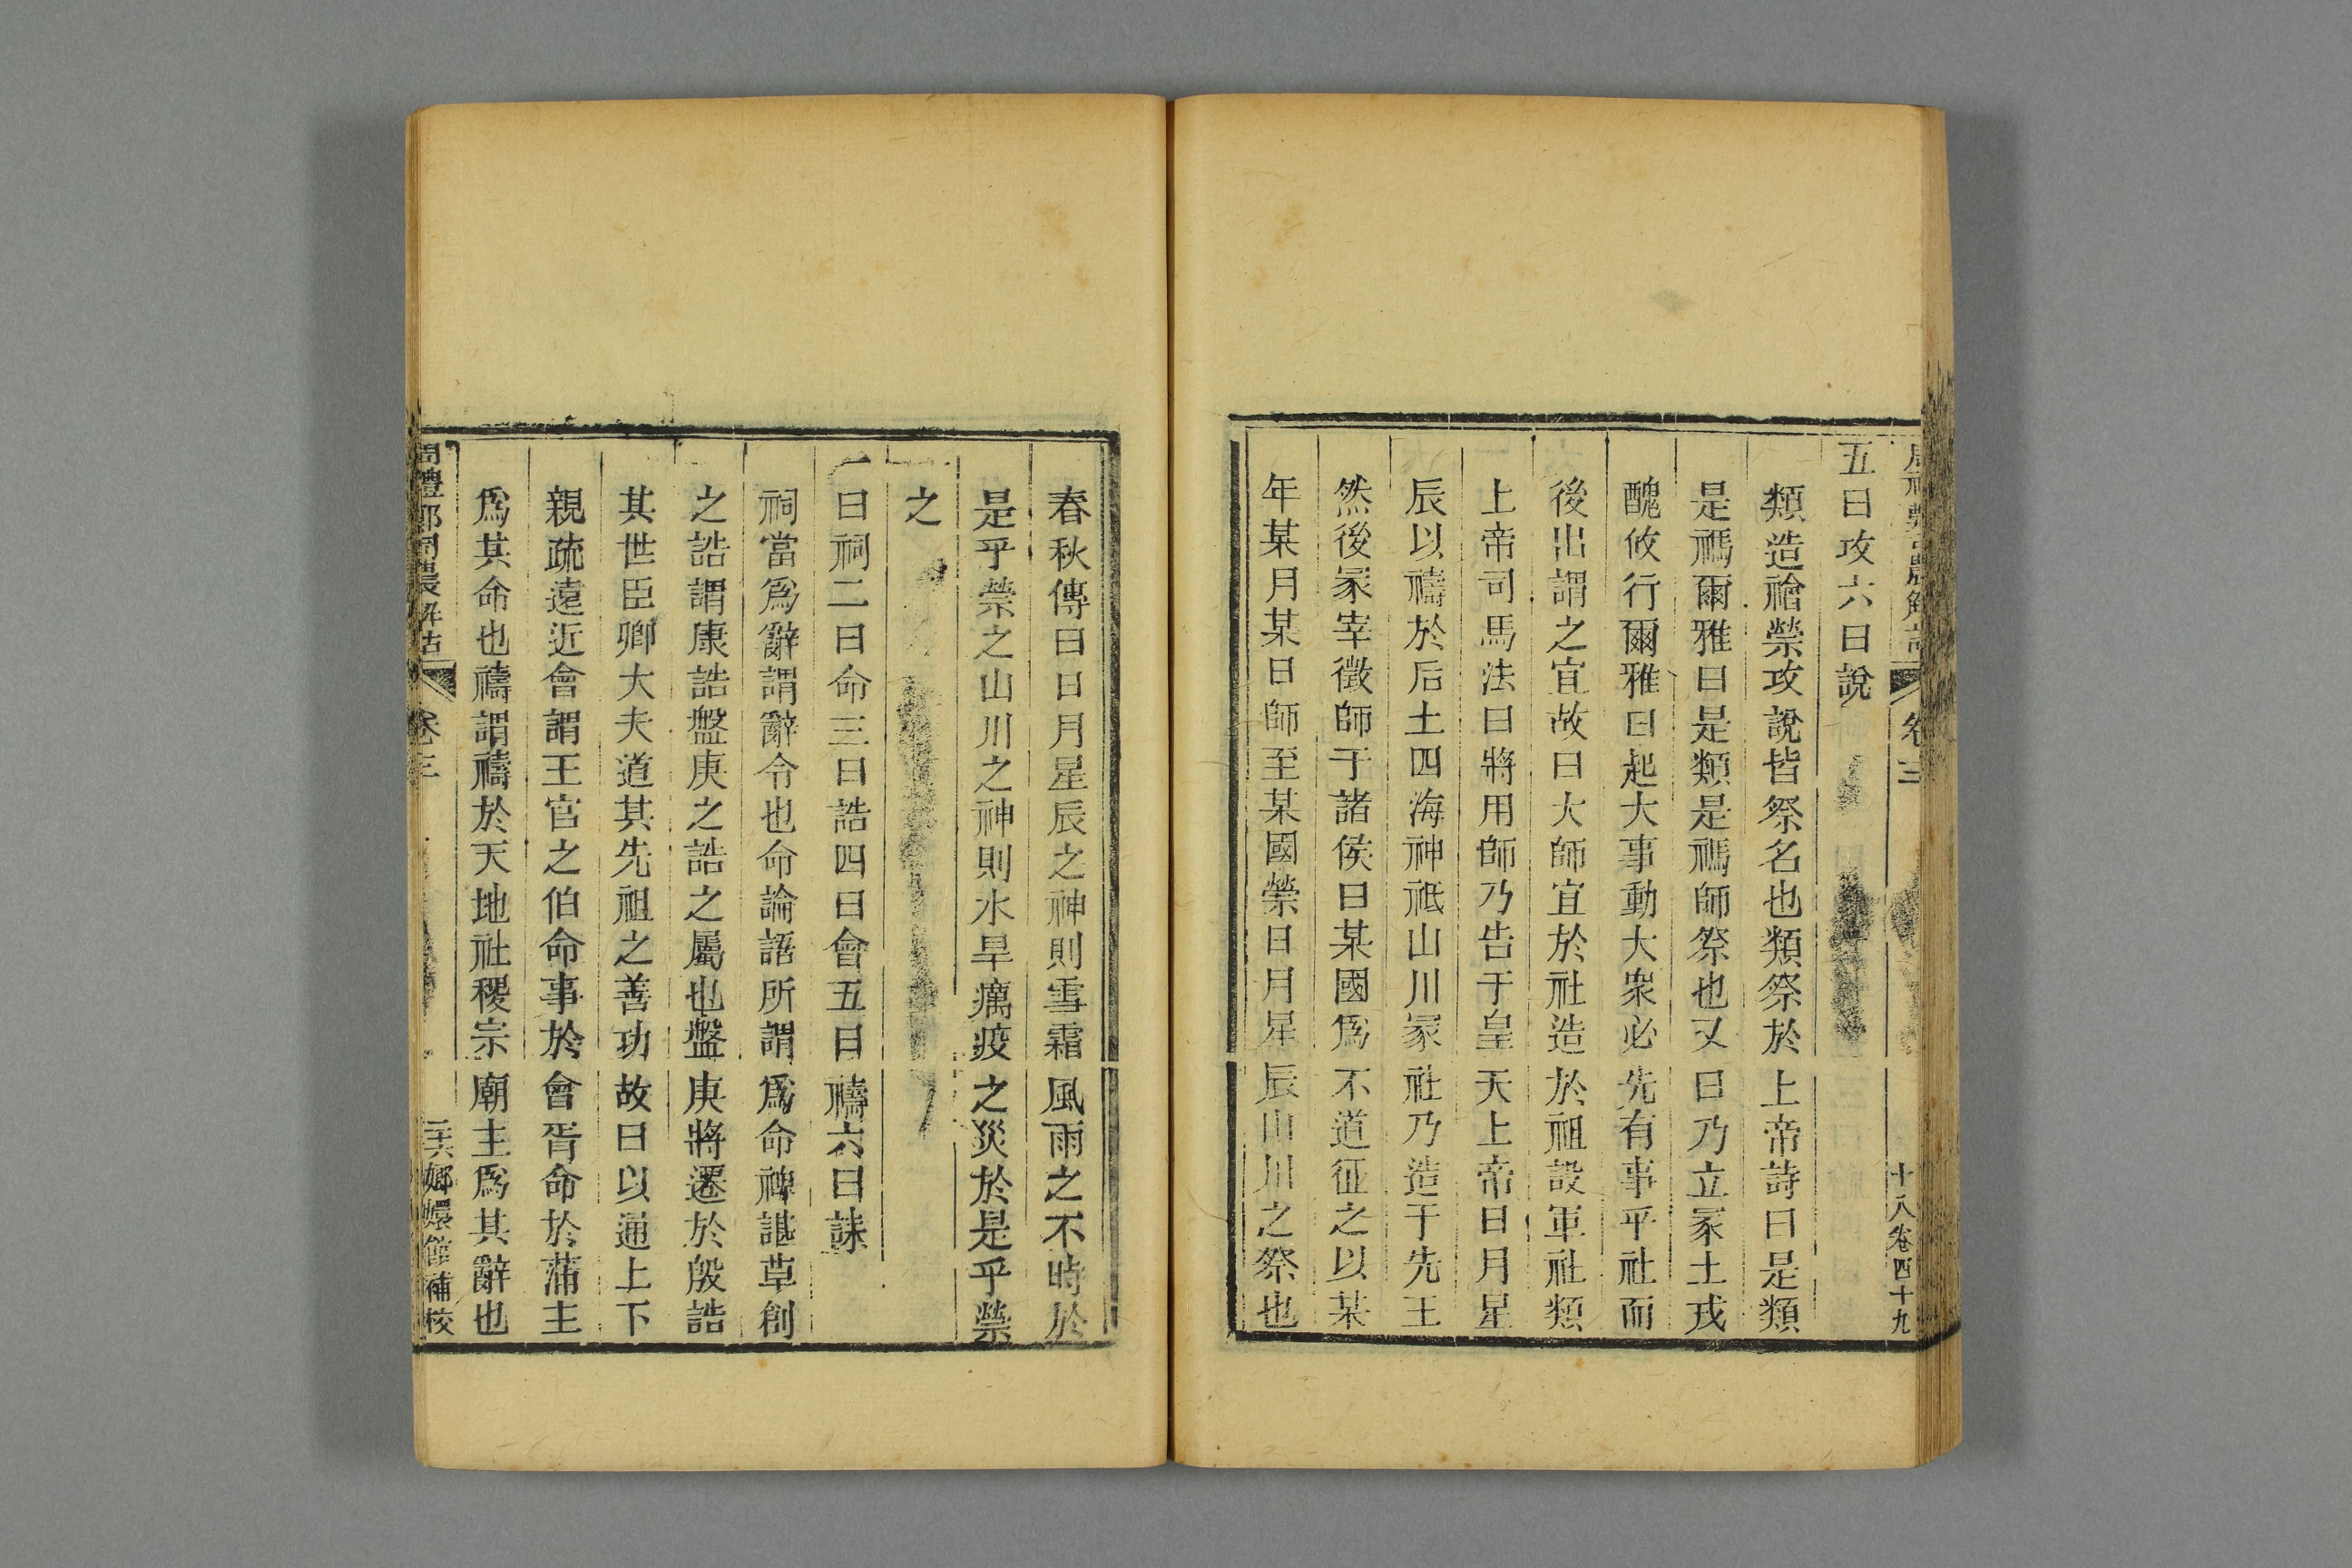 五曰攻六曰說
類造禬禜攻說皆祭名也類祭於上帝詩曰是類
是禡爾雅曰是類是禡師祭也又曰乃立冢土戎
醜攸行爾雅曰起大事動大衆必先有事乎社而
後出謂之宜故曰大師宜於社造於祖設軍社類
上帝司馬法曰將用師乃告于皇天上帝日月星
辰以禱於后土四海神祇山川冢社乃造于先王
然後冢宰徵師于諸侯曰某國爲不道征之以某
年某月某日師至某國禜日月星辰山川之祭也
卷三
十八卷四十九
春秋傳曰日月星辰之神則雪霜風雨之不時於
是乎禜之山川之神則水旱癘疫之災於是乎禜
之
一曰祠二曰命三曰誥四曰會五曰禱六曰誄
祠當爲辭謂辭令也命論語所謂爲命裨諶草創
之誥謂康誥盤庚之誥之屬也盤庚將遷於殷誥
其世臣卿大夫道其先祖之善功故曰以通上下
親疏遠近會謂王官之伯命事於會胥命於蒲主
爲其命也禱謂禱於天地社稷宗廟主爲其辭也
周禮鄭司農解詁
卷三
嫏嬛館補校